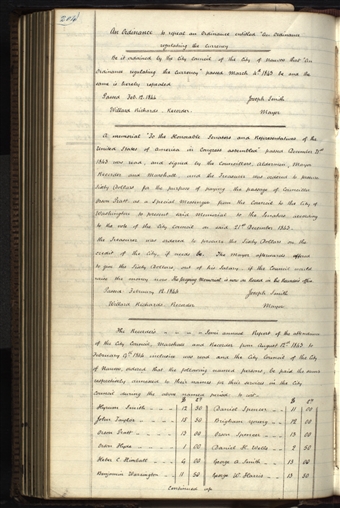 204
An Ordinance to repeal an Ordinance entitled "An Ordinance
regulating the currency.
Be it ordained by the City Council of the City of Nauvoo that "An
Ordinance regulating the Currency" passed March 4th 1843 be and the
same is hereby repealed
Passed Feb. 12. 1844 Joseph Smith
Willard Richards. Recorder Mayor
A memorial "To the Honorable Senators and Representatives of the
United States of America in Congress assembled" passed December 21st
1843 was read, and signed by the Councillors, Aldermen, Mayor
Recorder and Marshall, and the Treasurer was ordered to procure
Sixty Dollars for the purpose of paying the passage of Councillor
Orson Pratt as a Special Messenger from the Council to the City of
Washington to present said Memorial to the Senators, according
to the vote of the City Council on said 21st December 1843.
the Treasurer was ordered to procure the Sixty Dollars on the
credit of the City, if need be. The Mayor afterwards offered
to give the Sixty Dollars, out of his Salary, if the Council would
raise the money now. The foregoing Memorial is now on Record in the Recorder's office
Passed February 12. 1844 Joseph Smith
Willard Richards. Recorder Mayor
The Recorder's Semi annual Report of the attendance
of the City Council, Marshall and Recorder from August 12th 1843 to
February 12th 1844 inclusive was read and the City Council of the City
of Nauvoo ordered that the following named persons, be paid the sums
respectively annexed to their names for their services in the City
Council during the above named period to wit
$ cts $ cts
Hyrum Smith 12 50 Daniel Spencer 11 00
John Taylor 12 50 Brigham Young 12 00
Orson Pratt 13 00 Orson Spencer 13 00
Orson Hyde 1 00 Daniel H. Wells 2 50
Heber C. Kimball 4 00 George A. Smith 13 00
Benjamin Warrington 12 50 George W. Harris 13 50
Continued up